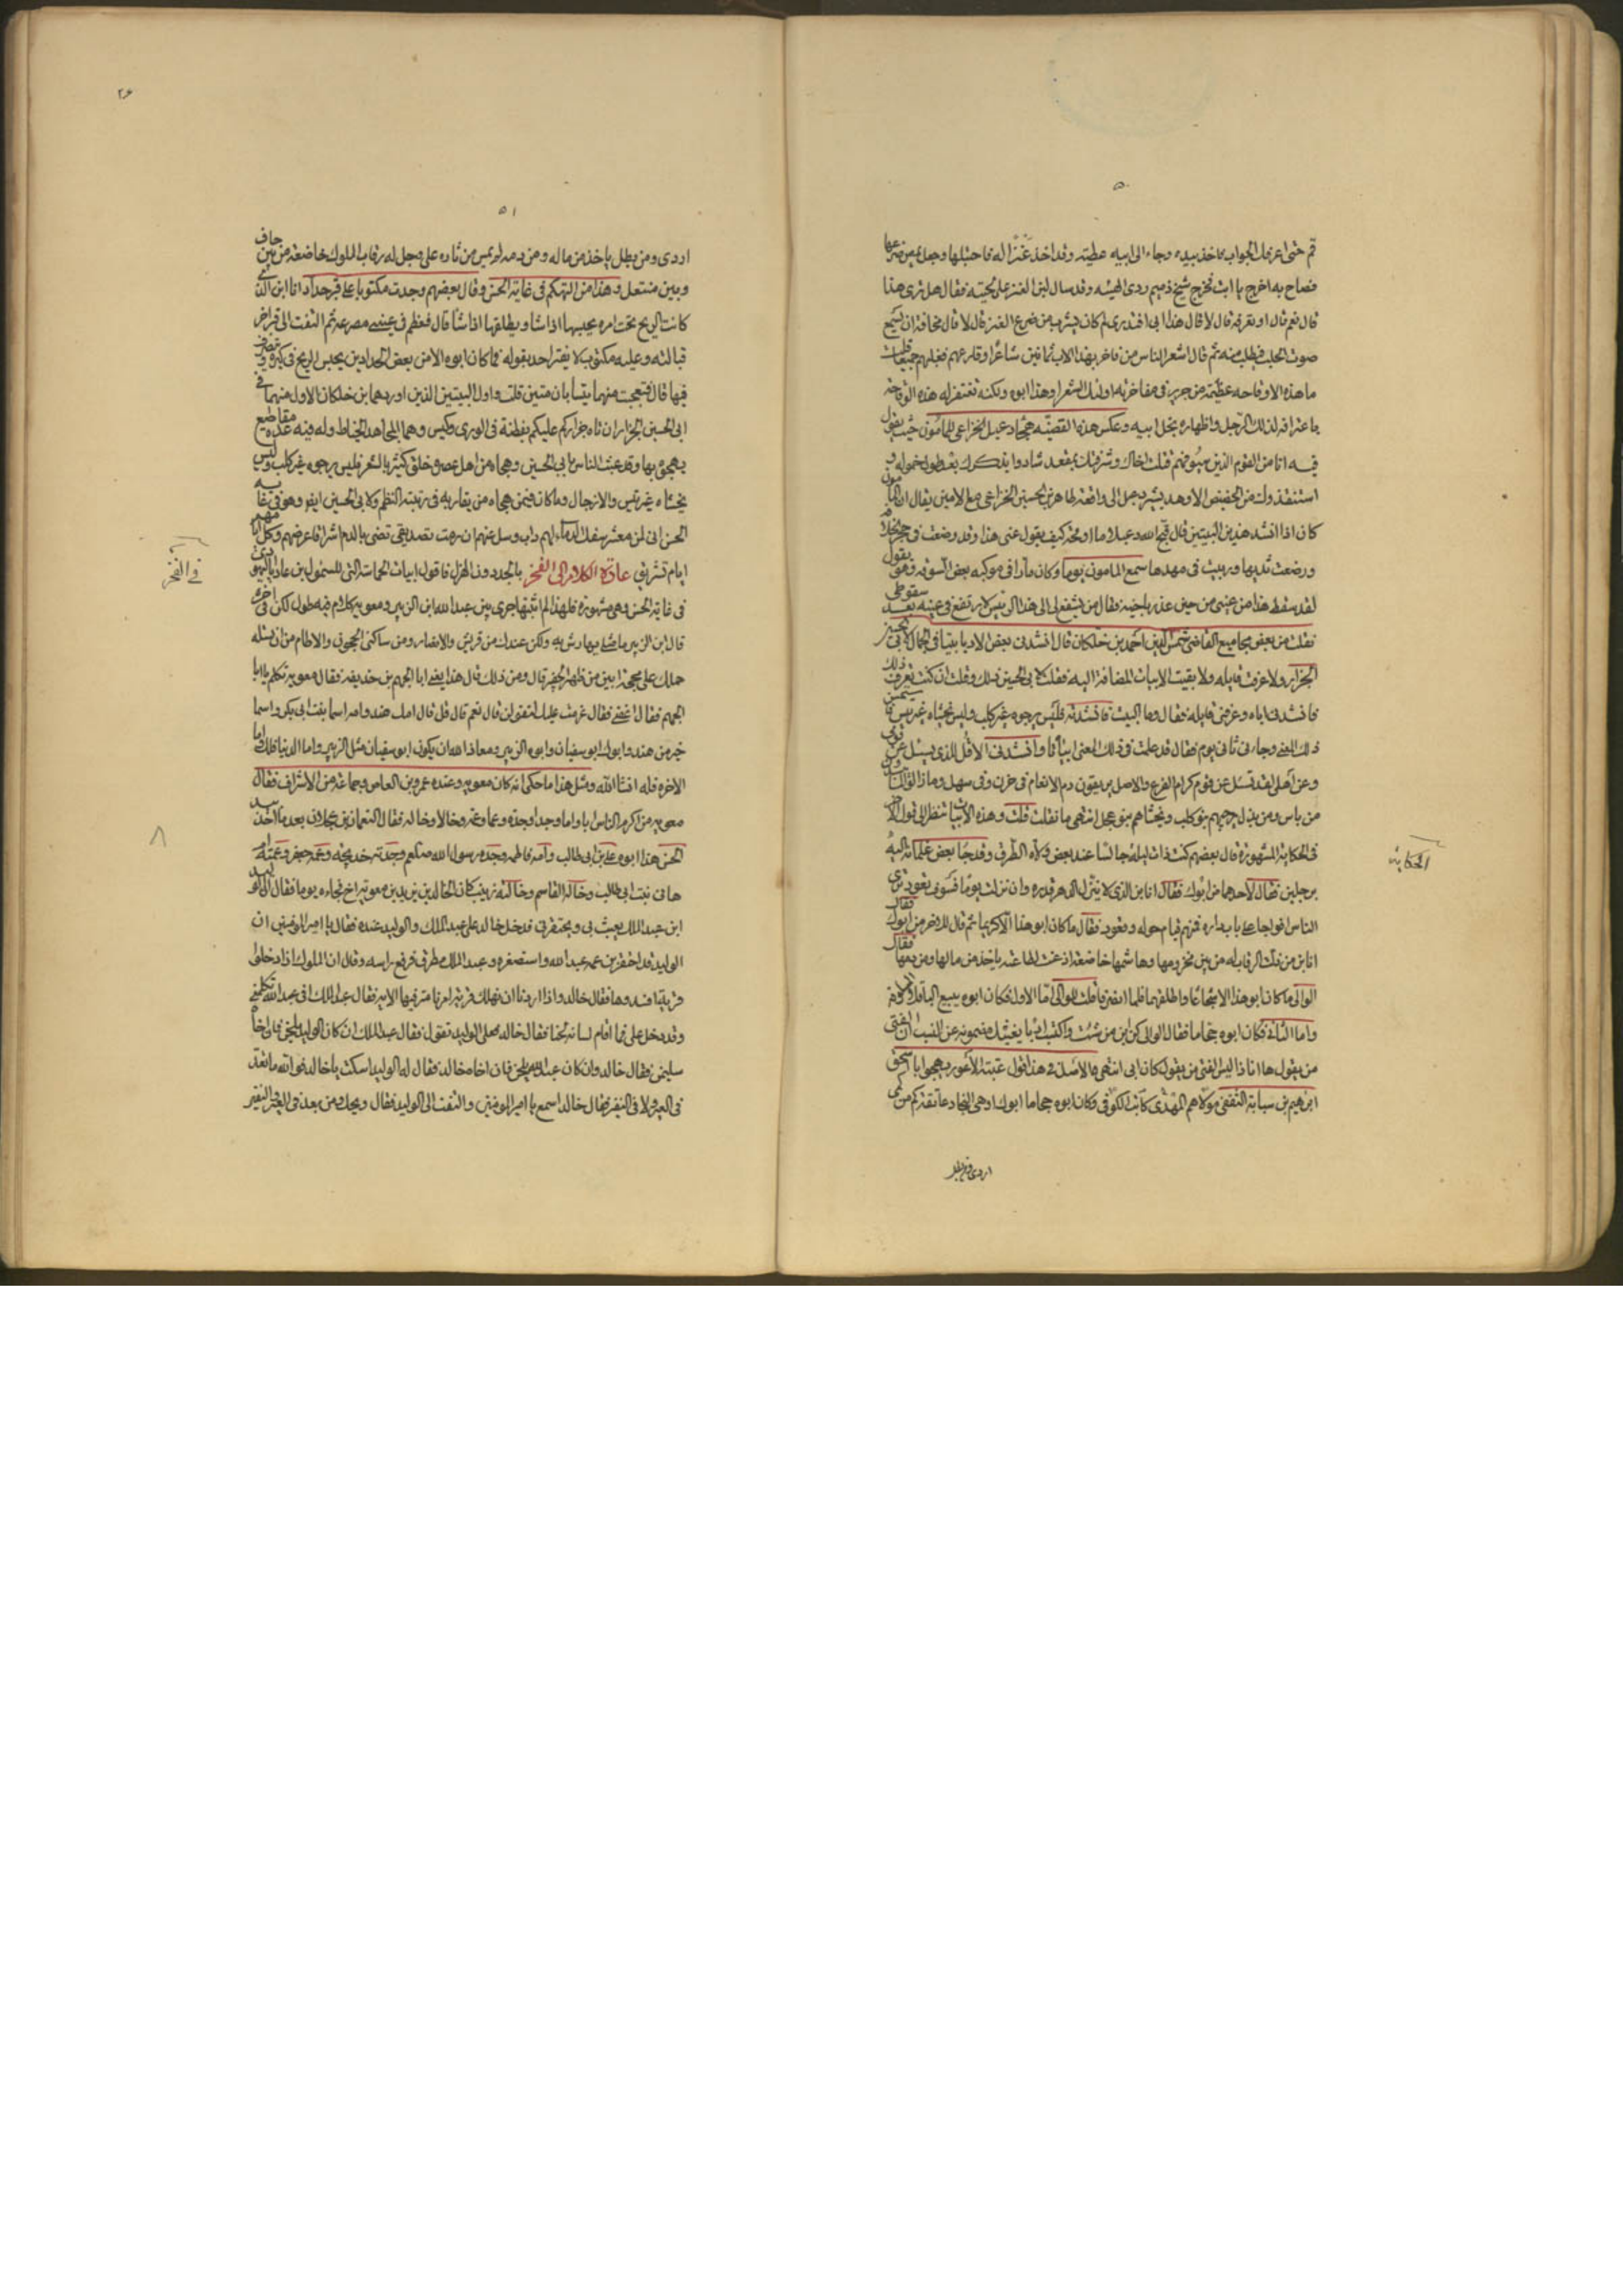 ٥٠
قم حتى اعرفك الجواب فاخذ بيده وجاء الى ابيه عطيته وقد اخذ عنزا له فاحتبلها وجعل يمص ضرعها
فصاح به اخرج يا ابت فخرج شيخ ذميم ردى الهيئه وقد سال لبن العنز على لحيته فقال هل ترى هذا
قال نعم قال او تعرفه قال لا قال هذا ابى افتدرى لم كان يشرب من ضرع العنز قال لا قال مخافة ان يسمع
صوت الحلب فيطلب منه ثم قال اشعر الناس من فاخر بهذا الاب ثمانين شاعرا وقارعهم فغلبهم جميعا قلت
ما هذه الا وقاحه عظيمة من جرير فى مفاخرته اولئك الشعرا وهذا ابوه ولكنه تغتفر له هذه الوقاحة
باعترافه لذلك الرجل واظهاره بخل ابيه وعكس هذه القصيّه هجاء دعبل الخزاعى للمأمون حيث يقول
فيه انا من القوم الذين سيوفهم قتلت اخاك وشرفتك بمقعد شادوا بذكرك بعد طول خموله و
استنقذوك من الحضيض الاوهد يشير دعبل الى واقعة طاهر بن الحسين الخزاعى مع الامين يقال ان المأمون
كان اذا انشد هذين البيتين قال قبح الله دعبلا ما اوقحه كيف يقول عنى هذا وقد وضعت فى حجر الخلافة
ورضعت ثديها وربيت فى مهدها سمع المامون يوما وكان مارا فى موكبه بعض السوقه وهو يقول
لقد سقط هذا من عينى من حين غدر باخيه فقال من يشفع لى الى هذا الرئيس لارتفع فى عينه بعد سقوطى
نقلت من بعض مجاميع القاضى شمس الدين احمد بن خلكان قال انشدنى بعض الادبا بيتا فى الجمال لابى الحسين
الجزار ولا عرفت قايله ولا بقيت الابيات المضافة اليه فقلت لابى الحسين ذلك وقلت ان كنت تعرف ذلك
فانشدنا اياه وعرفنى قايله فقال وما البيت فانشدته فليس يرجوه غير كلب وليس يخشاه غير تيس
ذلك المعنى وجاءنى ثانى يوم فقال قد عملت فى ذلك المعنى ابياتا وانشدنى الا قل للذى يسئل عن قومى
وعن اهلى لقد تسئل عن قوم كرام الفرع والاصل يريقون دم الانعام فى حزن وفى سهل وما زالوا
من باس ومن بذل يرجيهم بنو كلب ويخشاهم بنو عجل انتهى ما نقلت قلت وهذه الابيات تنظر الى قول الاخر
فى الحكاية المشهورة قال بعضهم كنت ذات ليلة جالسا عند بعض ولاة الطرق وقد جا بعض غلمانه اليه
برجلين فقال لاحدهما من ابوك فقال انا ابن الذى لا ينزل الدهر قدره وان نزلت يوما فسوف تعود ترى
الناس افواجا على باب داره فمنهم قيام حوله وقعود فقال ما كان ابو هذا الا كريما ثم قال للاخر من ابوك فقال
انا بن من ذلت الرقاب له من بين مخزومها وهاشمها خاضعة اذعنت لطاعته ياخذ من مالها ومن دمها فقال
الوالى ما كان ابو هذا الا شجاعا واطلقهما فلما انصرفا قلت للوالى اما الاول فكان ابوه يبيع الباقلا
واما الثانى فكان ابوه حجاما فقال الوالى كن ابن من شئت واكتسب ادبا يغنيك مضمونه عن النسب ان الفتى
من يقول ها انا ذا ليس الفتى من يقول كان ابى انتهى
ابرهيم بن سيابة الثقفى مولاهم
اردى ومن يطل
الحكاية
٥١
اردى ومن يطل ياخذ من ماله ومن دمه لم يمس من ثاره على وجل له رقاب الملوك خاضعة من بين حاف
وبين منتعل وهذا من التهكم فى غاية الحسن وقال بعضهم وجدت مكتوبا على قبر حداد انا ابن الذى
كانت الريح تحت امره يحبسها اذا شا ويطلقها اذا شا قال فعظم فى عينى مصرعه ثم التفت الى قبر اخر
قبالته وعليه مكتوب لا يغتر احد بقوله فما كان ابوه الا من بعض الحدادين يحبس الريح فى كيره ويتصرف
فيها قال فتعجبت منهما يتسابان ميتين قلت واول البيتين الذين اوردهما بن خلكان الاول منهما فى
ابى الحسين الجزار ان تاه جزاركم عليكم بفطنة فى الورى وكيس وهما لمجاهد الخياط وله فيه عده مقاطيع
يهجوه بها وقد عبث الناس بابى الحسين وهجاه من اهل عصره خلق كثير بالشعر فليس يرجوه غير كلب وليس
يخشاه غير تيس والازجال وما كان فيمن هجاه من يقاربه فى رتبة النظم ولابى الحسين
الحسن انى لمن معشر سفك الدماء لهم داب وسل عنهم ان رمت تصديقى تضى بالدم اشراقا عراصهم وكل
ايام تشريق عادة الكلام الى الفخر بالجد وذا الهزل فاقول ابيات الحماسة التى للسمؤل بن عاديا اليهودى
فى غاية الحسن وهى مشهورة فلهذا لم اثبتها جرى بين عبد الله ابن الزبير ومعويه كلام فيه طول لكن فى اخره
قال ابن الزبير
حملك على
الجهم فقال اعفنى فقال عزمت عليك لتقولن قال نعم قال قل قال امك هند وامه اسما بنت ابى بكر واسما
خير من هند وابوك ابو سفيان وابوه الزبير ومعاذ الله ان يكون ابو سفيان مثل الزبير واما الدنيا فلك اما
الاخره فله انشا الله ومثل هذا ما حكى انه كان معويه وعنده عمرو بن العاص وجماعة من الاشراف فقال
معويه من اكرم الناس ابا واما وجدا وجدة وعما وعمه وخالا وخاله فقال النعمان بن عجلان بعد ما اخذ بيد
الحسن هذا ابوه على بن ابى طالب وامه فاطمه وجده رسول الله صلعم وجدته خديجه وعمه جعفر وعمته ام
هانى بنت ابى طالب وخاله القاسم وخالته زينب كان لخالد بن يزيد بن معويه اخ فجاءه يوما فقال الوليد
ابن عبد الملك يعبث بى ويحتقرنى فدخل خالد على عبد الملك والوليد عنده فقال يا امير المؤمنين ان
الوليد قد احتقر بن عمه عبد الله واستصغره وعبد الملك مطرق فرفع راسه وقال ان الملوك اذا دخلوا
قرية افسدوها فقال خالد واذا اردنا ان نهلك قرية امرنا مترفيها الايه فقال عبد الملك افى عبد الله تكلمنى
وقد دخل على فما اقام لسانه لحنا فقال خالد افعلى الوليد تعول فقال عبد الملك ان كان الوليد يلحن فان اخاه
سليمن فقال خالد وان كان عبد الله يلحن فان اخاه خالد فقال له الوليد اسكت يا خالد فوالله ما تعد
فى العير ولا فى النفير فقال خالد اسمع يا امير المؤمنين والتفت الى الوليد فقال ويحك ومن يعد فى العير والنفير
فى الفخر